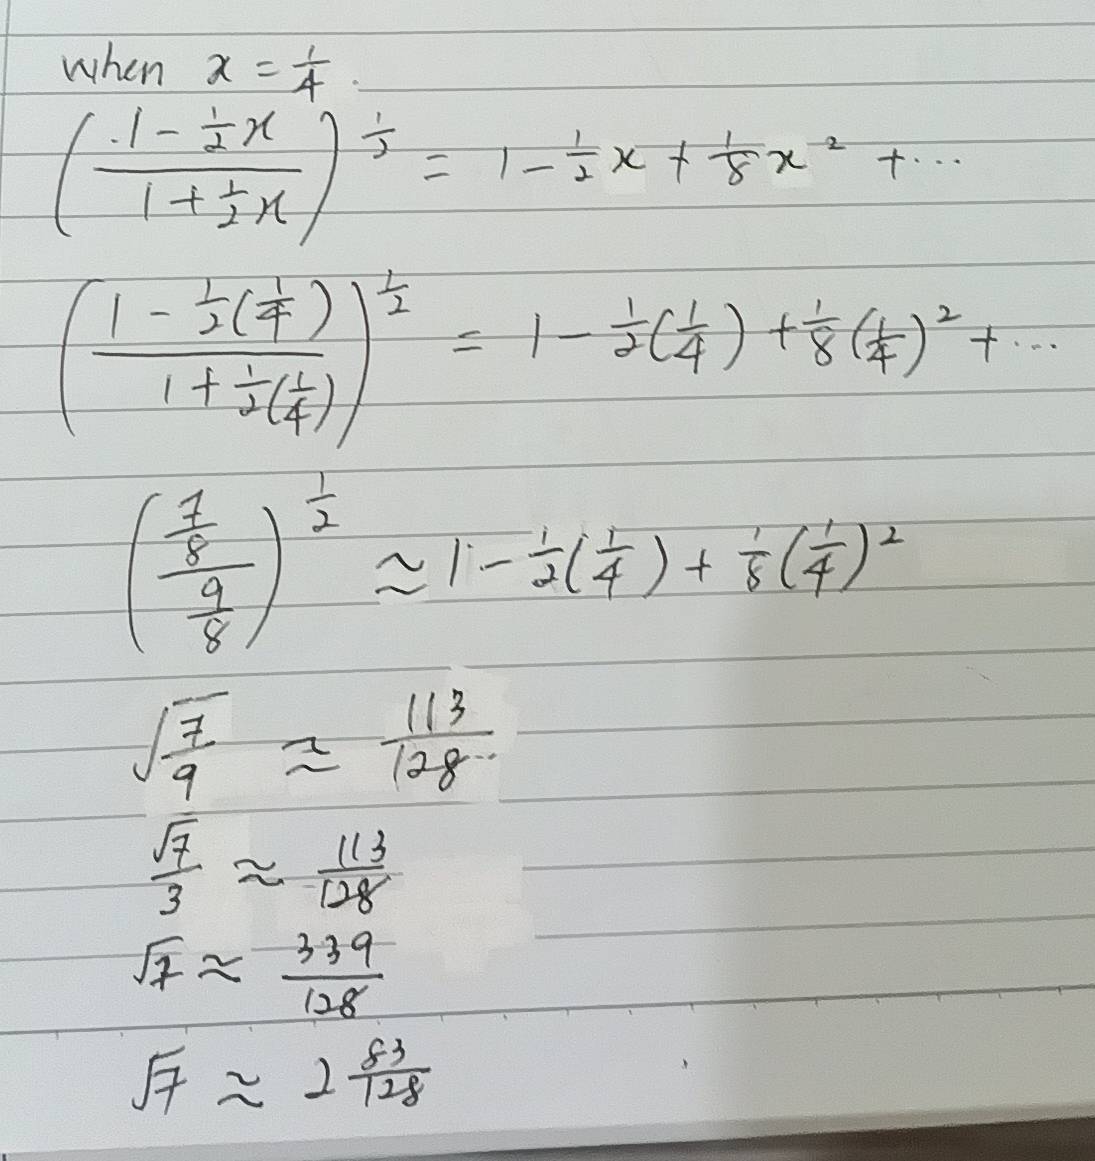 when x = 1/4.
((1 - 1/2 x)/(1 + 1/2 x))^(1/2) = 1 - 1/2 x + 1/8 x² + ...
((1 - 1/2(1/4))/(1 + 1/2(1/4)))^(1/2) = 1 - 1/2(1/4) + 1/8(1/4)² + ...
((7/8)/(9/8))^(1/2) ≈ 1 - 1/2(1/4) + 1/8(1/4)²
√(7/9) ≈ 113/128
√7/3 ≈ 113/128
√7 ≈ 339/128
√7 ≈ 2 83/128